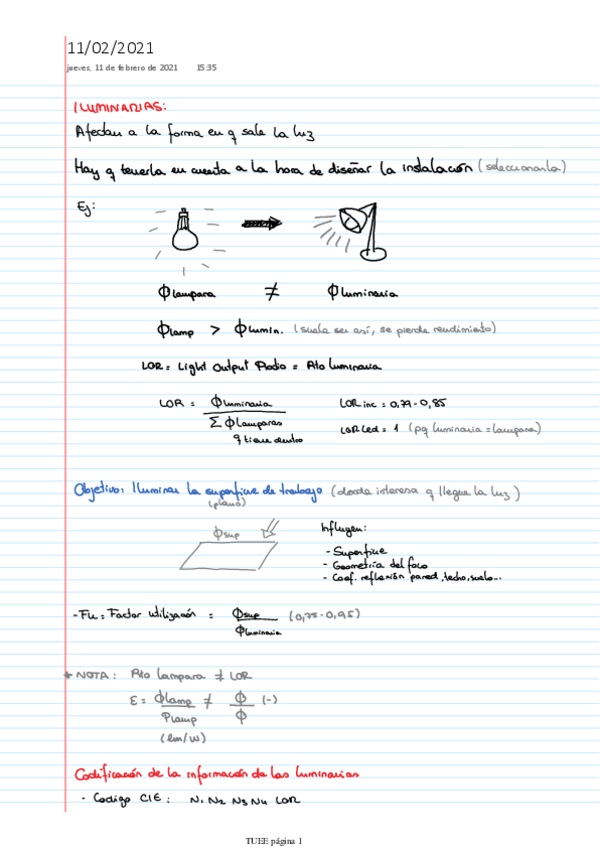 11/02/2021
jueves, 11 de febrero de 2021 15:35
ILUMINARIAS:
Afectan a la forma en q sale la luz
Hay q tenerla en cuenta a la hora de diseñar la instalación (seleccionarla)
Ej:
Φlampara ≠ Φluminaria
Φlamp > Φlumin. (suele ser así, se pierde rendimiento)
LOR = Light Output Radio = Rto luminaria
LOR = Φluminaria / Σ Φlamparas q tiene dentro
LOR inc = 0,79 - 0,85
LOR Led = 1 (pq luminaria = lampara)
Objetivo: Iluminar la superficie de trabajo (donde interesa q llegue la luz)
(plano)
Φsup
Influyen:
- Superficie
- Geometría del foco
- Coef. reflexión pared, techo, suelo...
- Fu = Factor utilización = Φsup / Φluminaria (0,75 - 0,95)
* NOTA: Rto lampara ≠ LOR
ε = Φlamp / Plamp ≠ Φ / Φ (-)
(lm/W)
Codificación de la información de las luminarias
- Codigo CIE: N1 N2 N3 N4 LOR
TUEE página 1